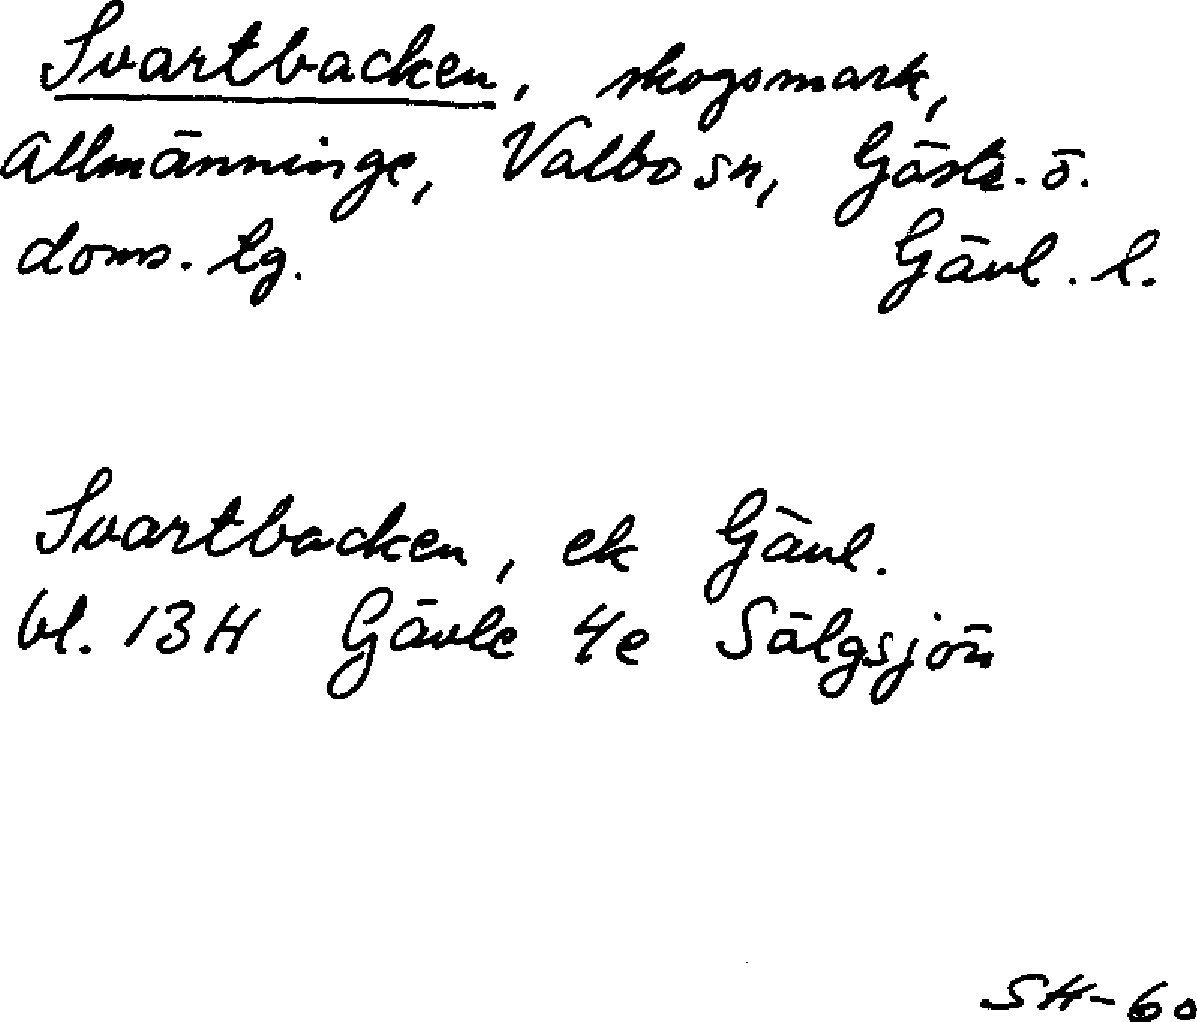 Svartbacken, skogsmark,
Allmänninge, Valbo sn, Gästr. ö.
doms. tg. Gävl. l.
Svartbacken, ek Gävl.
bl. 13H Gävle 4e Sälgsjön
SH-60